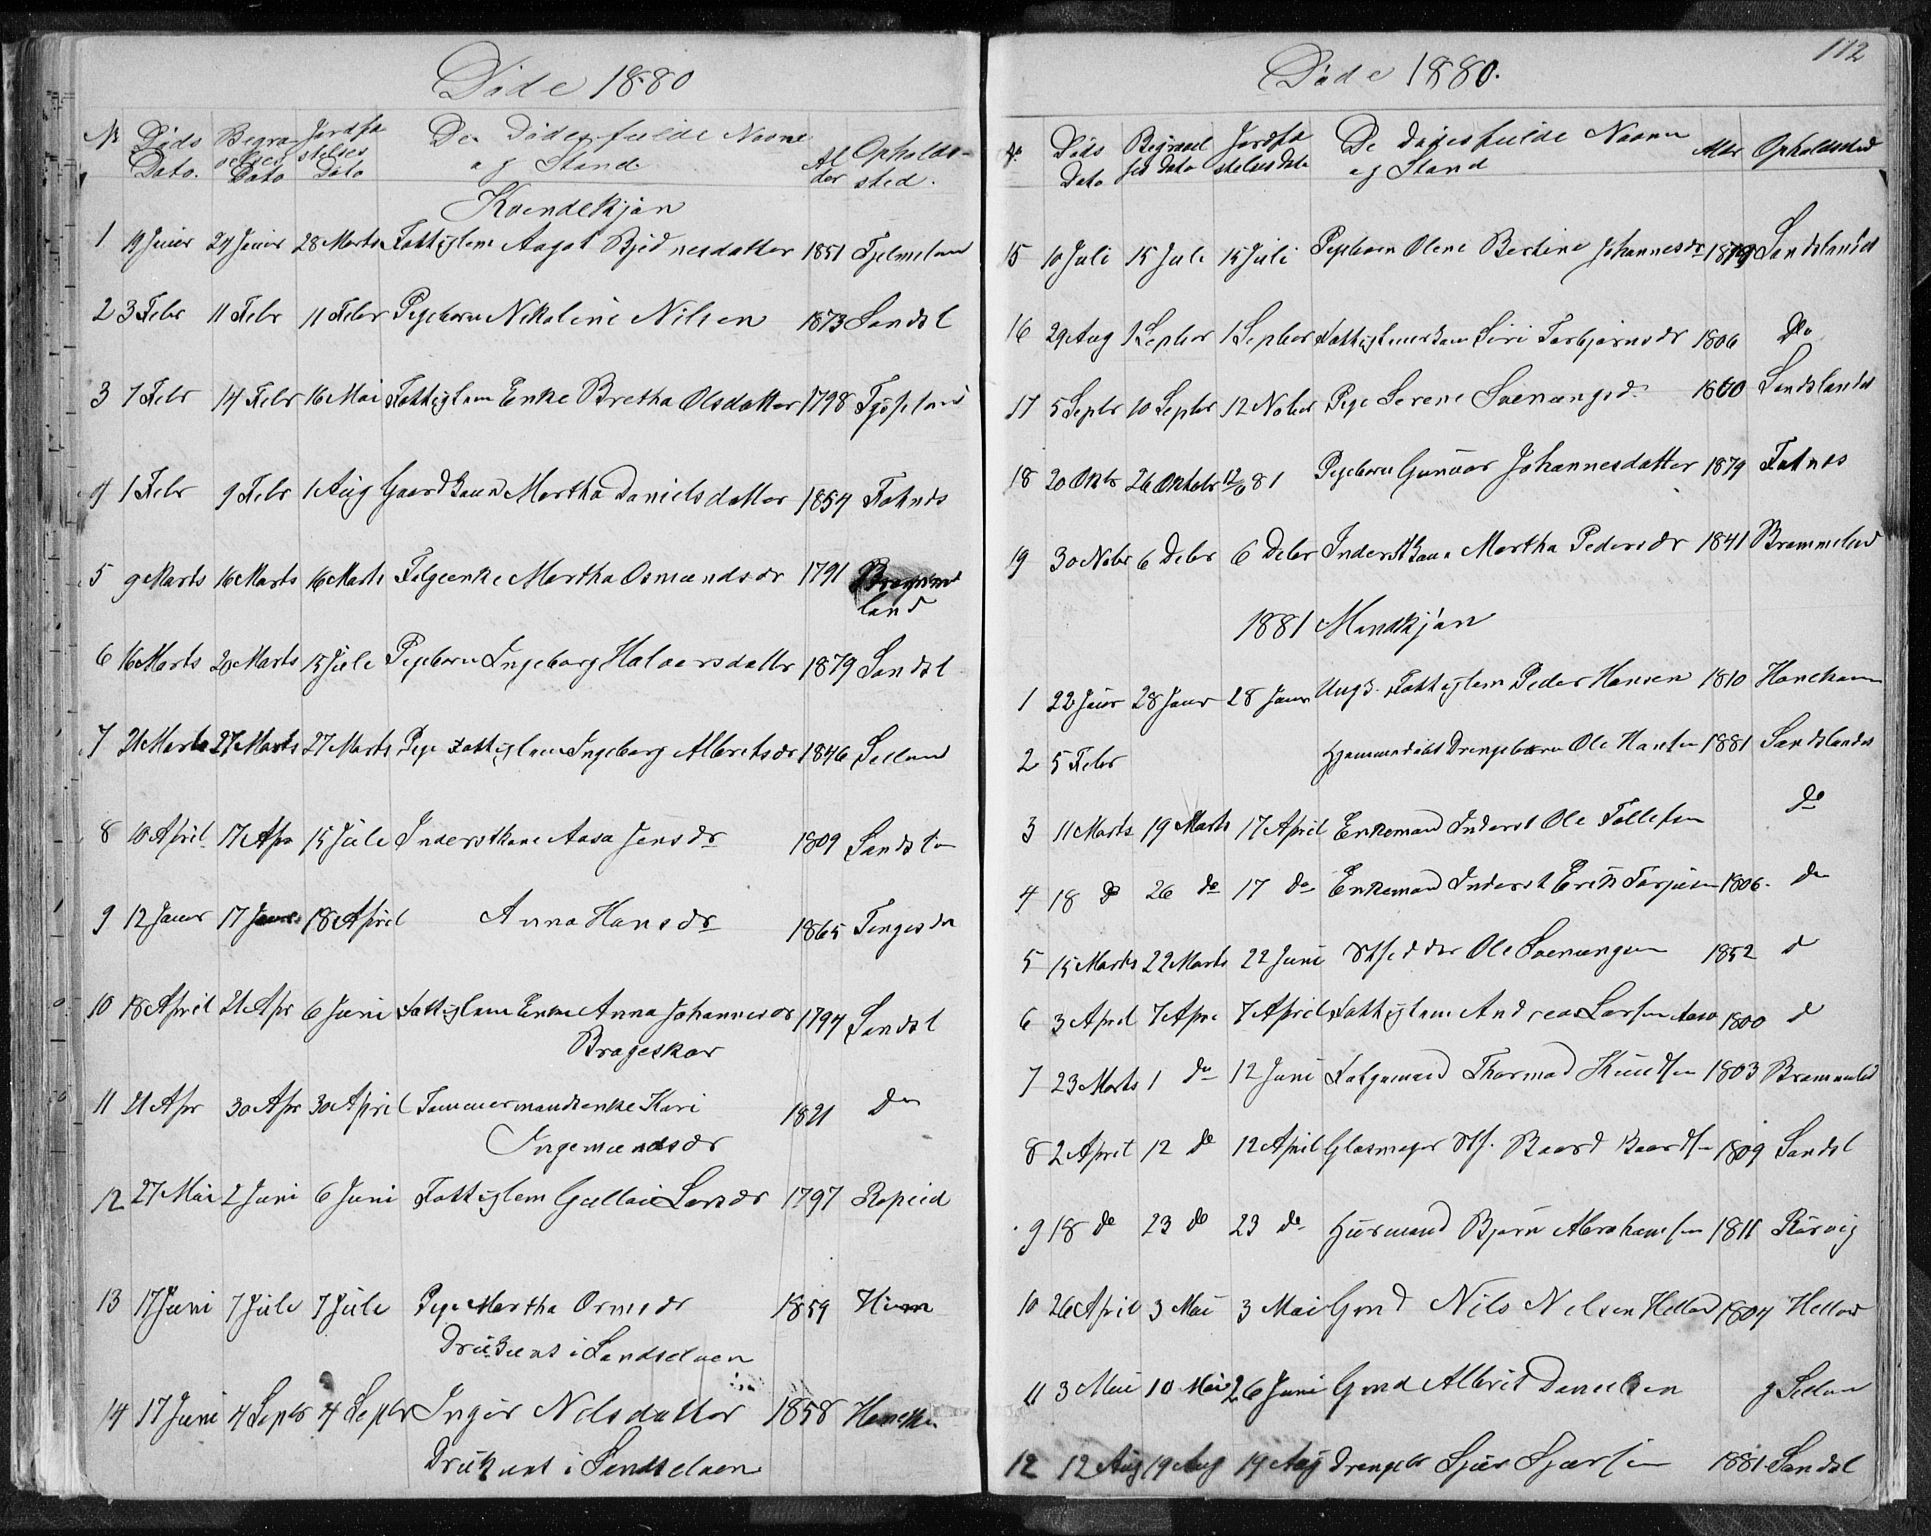 Døde 1880
No Døds Dato. Begravelses Dato Jordfæstelses Dato De Dødes fulde Navne og Stand Alder Opholdssted.
Kvindekjøn
1 19 Januar 24 Januar 28 Marts Fattiglem Aagot Bjednesdatter 1851 Fjelmeland
2 3 Febr 11 Febr 11 Febr Pigebarn Nikoline Nilsen 1873 Sandsl
3 7 Febr 14 Febr 16 Mai Fattiglem Enke Bretha Olsdatter 1798
4 1 Febr 9 Febr 1 Aug Gaardkone Martha Danielsdatter 1854 Foknes
5 9 Marts 16 Marts 16 Marts Folgeenke Martha Osmundsdr 1791 Brommeland
6 16 Marts 20 Marts 15 Jule Pigebarn Ingeborg Halvorsdatter 1879 Sandsl
7 21 Marts 27 Marts 27 Marts Pige Fattiglem Ingeborg Albretsdr 1846 Selland
8 10 April 17 Apr 15 Jule Inderstkone Aasa Jensdr 1809 Sandsl
9 12 Januar 17 Januar 18 April Anna Hansdr 1865
10 18 April 21 Apr 6 Juni Fattiglem Enke Anna Johannesdr 1794 Sandsl
Brageskar
11 21 Apr 30 Apr 30 April Tømmermandsenke Kari 1821 do
Ingemundsdr
12 27 Mai 2 Juni 6 Juni Fattiglem Gullai Larsdr 1797 Ropeid
13 17 Juni 7 Jule 7 Jule Pige Martha Ormsdr 1859 Hiim
Druknet i Sandselven
14 17 Juni 4 Septr 4 Septr Inger Nilsdatter 1858
Druknet i Sandselven
112
Døde 1880.
No Døds Dato Begravelses Dato Jordfæstelses Dato De Dødes fulde Navne og Stand Alder Opholdssted
15 10 Juli 15 Jule 15 Juli Pigebarn Olene Bertine Johannesdr 1879 Sandslandet
16 29 Aug 1 Septbr 1 Septbr Fattiglemskone Siri Torbjørnsdr 1806 Do
17 5 Septbr 10 Septbr 12 Nobr Pige Serene Svenungsd. 1860 Sandslandet
18 20 Oktr 26 Oktobr 12/6 81 Pigebarn Gunvor Johannesdatter 1879 Foknes
19 30 Nobr 6 Debr 6 Debr Inderstkone Martha Pedersdr 1841 Brommeland
1881 Mandkjøn
1 22 Januar 28 Januar 28 Januar Ungk. Fattiglem Peder Hansen 1810
2 5 Febr Hjemmedøbt Drengebarn Ole Hansen 1881 Sandslandet
3 11 Marts 19 Marts 17 April Enkemand Inderst Ole Tollefsen do
4 18 do 26 do 17 do Enkemand Inderst Erik Torjusen 1806. do
5 15 Marts 22 Marts 22 Juni Ole Svenungsen 1852 d
6 3 April 7 Apr 7 April Fattiglem Andreas Larsen Aasa 1800 d
7 23 Marts 1 do 12 Juni Folgemand Thormod Knudsen 1803 Brommeland
8 2 April 12 do 12 April Glasmager Baard Baardsen 1809 Sandsl
9 18 do 23 do 23 do Husmand Bjørn Abrahamsen 1811 Rørvig
10 26 April 3 Mai 3 Mai Gmd Nils Nilsen Helland 1804 Helland
11 3 Mai 10 Mai 26 Juni Gmd Albrit Danielsen
12 12 Aug 19 Aug 19 Aug Drengeb Sjur Sjursen 1881 Sandsl